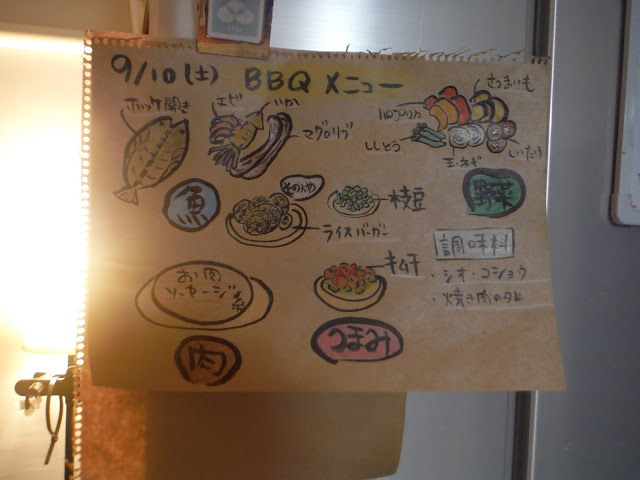 9/10(土) BBQ メニュー
ホッケ開き
エビ
いか
マグロリブ
さつまいも
パプリカ
ししとう
玉ネギ
しいたけ
魚
そのた
枝豆
野菜
ライスバーガー
調味料
キムチ
・シオ・コショウ
・焼き肉のタレ
お肉
ソーセージ系
肉
つまみ